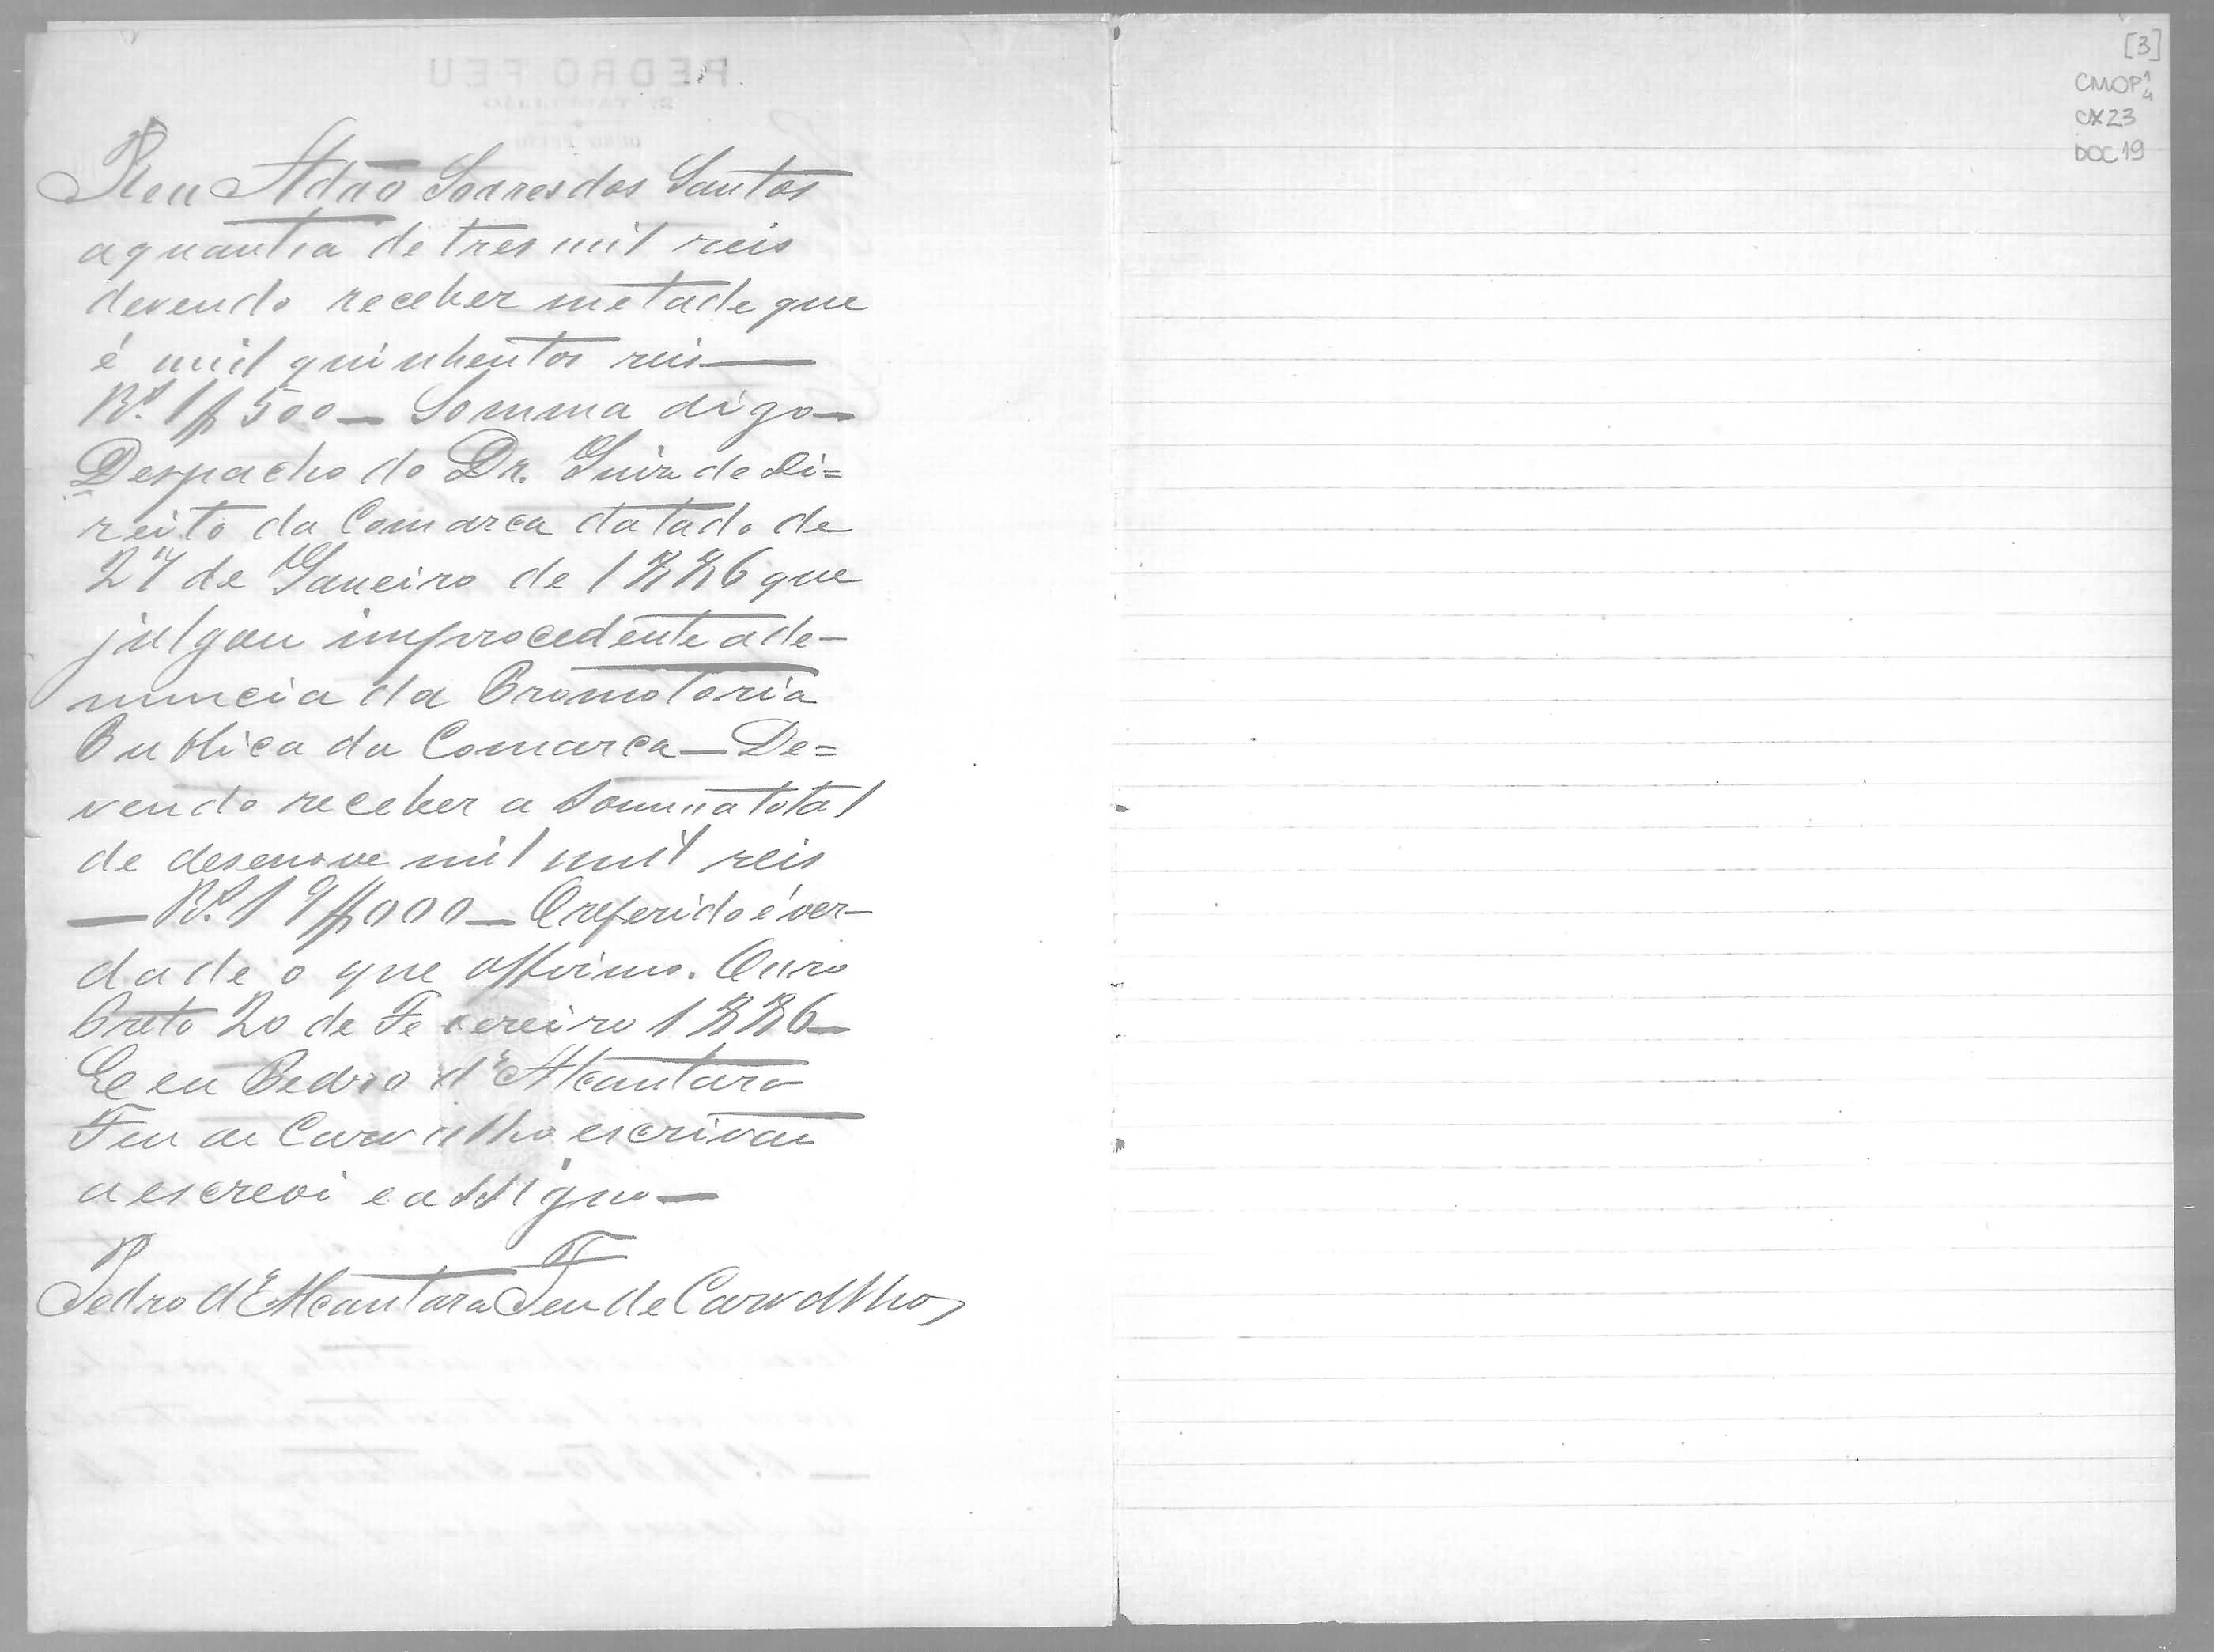 Reu Adão Soares dos Santos
a quantia de tres mil reis
devendo receber metade que
é mil quinhentos reis —
Rs. 1$500 — Somma digo —
Despacho do Dr. Juiz de Di=
reito da Comarca datado de
27 de Janeiro de 1886 que
julgou improcedente a de-
nuncia da Promotoria
Publica da Comarca — De=
vendo receber a Somma total
de desenove mil mil reis
— Rs. 19$000 — O referido é ver-
dade o que affirmo. Ouro
Preto 20 de Fevereiro 1886 —
E eu Pedro d'Alcantara
Feu de Carvalho escrivão
a escrevi e assigno —
Pedro d'Alcantara Feu de Carvalho
PEDRO FEU
[3]
CMOP
CX 23
DOC 19